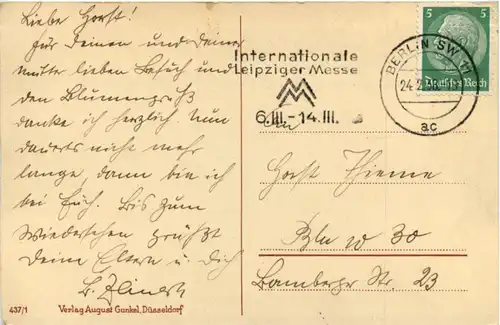 Liebe Horst!
Für Deinen und Deiner
Mutter lieben Besuch und
den Blumengruß
danke ich herzlich. Nun
dauerts nicht mehr
lange, dann bin ich
bei Euch. Bis zum
Wiedersehen grüßt
Deine Eltern u. dich
437/1 Verlag August Gunkel, Düsseldorf
Internationale
Leipziger Messe
MM
6.III.-14.III.
BERLIN SW
24.2
ac
5 5
Deutsches Reich
Horst Thieme
Bln W 30
Bamberger Str. 23